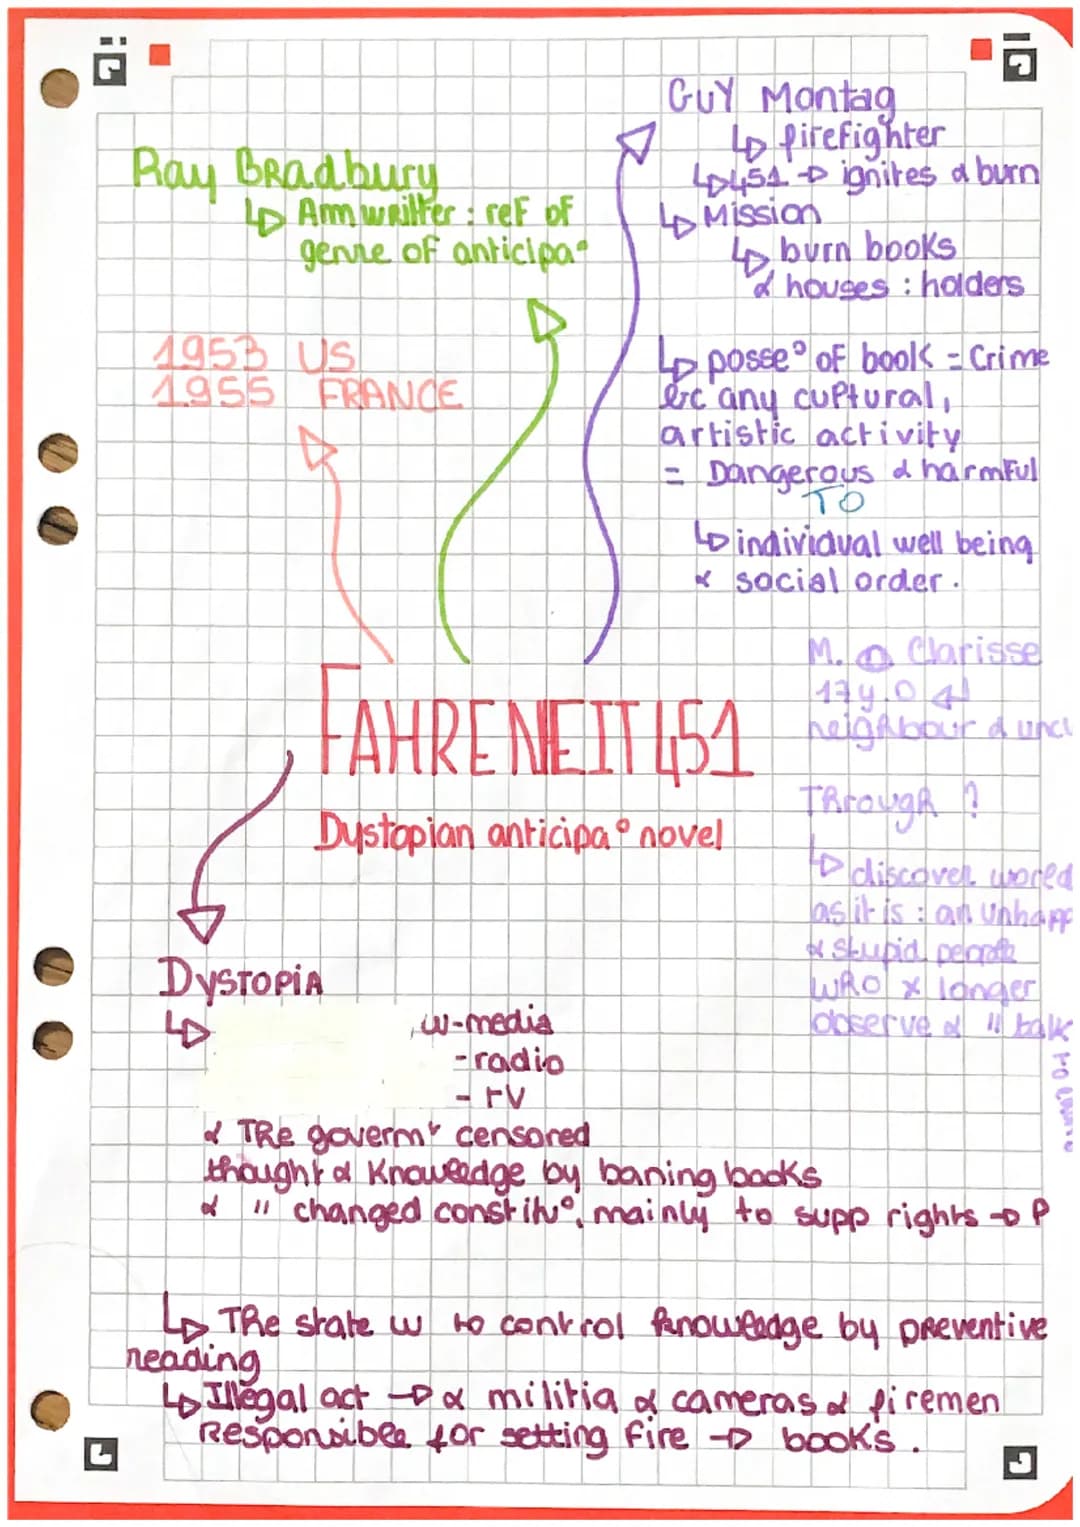 GUY Montag
↳ firefighter
↳ 451 → ignites & burn
↳ Mission
↳ burn books
& houses : holders
Ray Bradbury
↳ Am writter : ref of
genre of anticipa°
1953 US
1955 FRANCE
↳ posse° of book = Crime
bc any cultural,
artistic activity
= Dangerous & harmful
TO
↳ individual well being
& social order.
M. Clarisse
17 y.o ↲
neighbour & uncl
Through ?
↳ discover world
as it is : an unhapp
& stupid people
who x longer
observe & " talk
FAHRENEIT 451
Dystopian anticipa° novel
DYSTOPIA
↳ w-media
- radio
- TV
& The governmt censored
thought & Knowledge by baning books
& " changed constitu°, mainly to supp rights → P
↳ The state w to control knowledge by preventive
reading
↳ Illegal act → & militia & cameras & firemen
Responsible for setting fire → books.